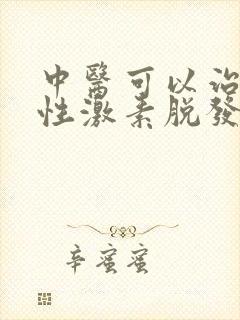 中醫可以治
性激素脱發
辛蜜蜜